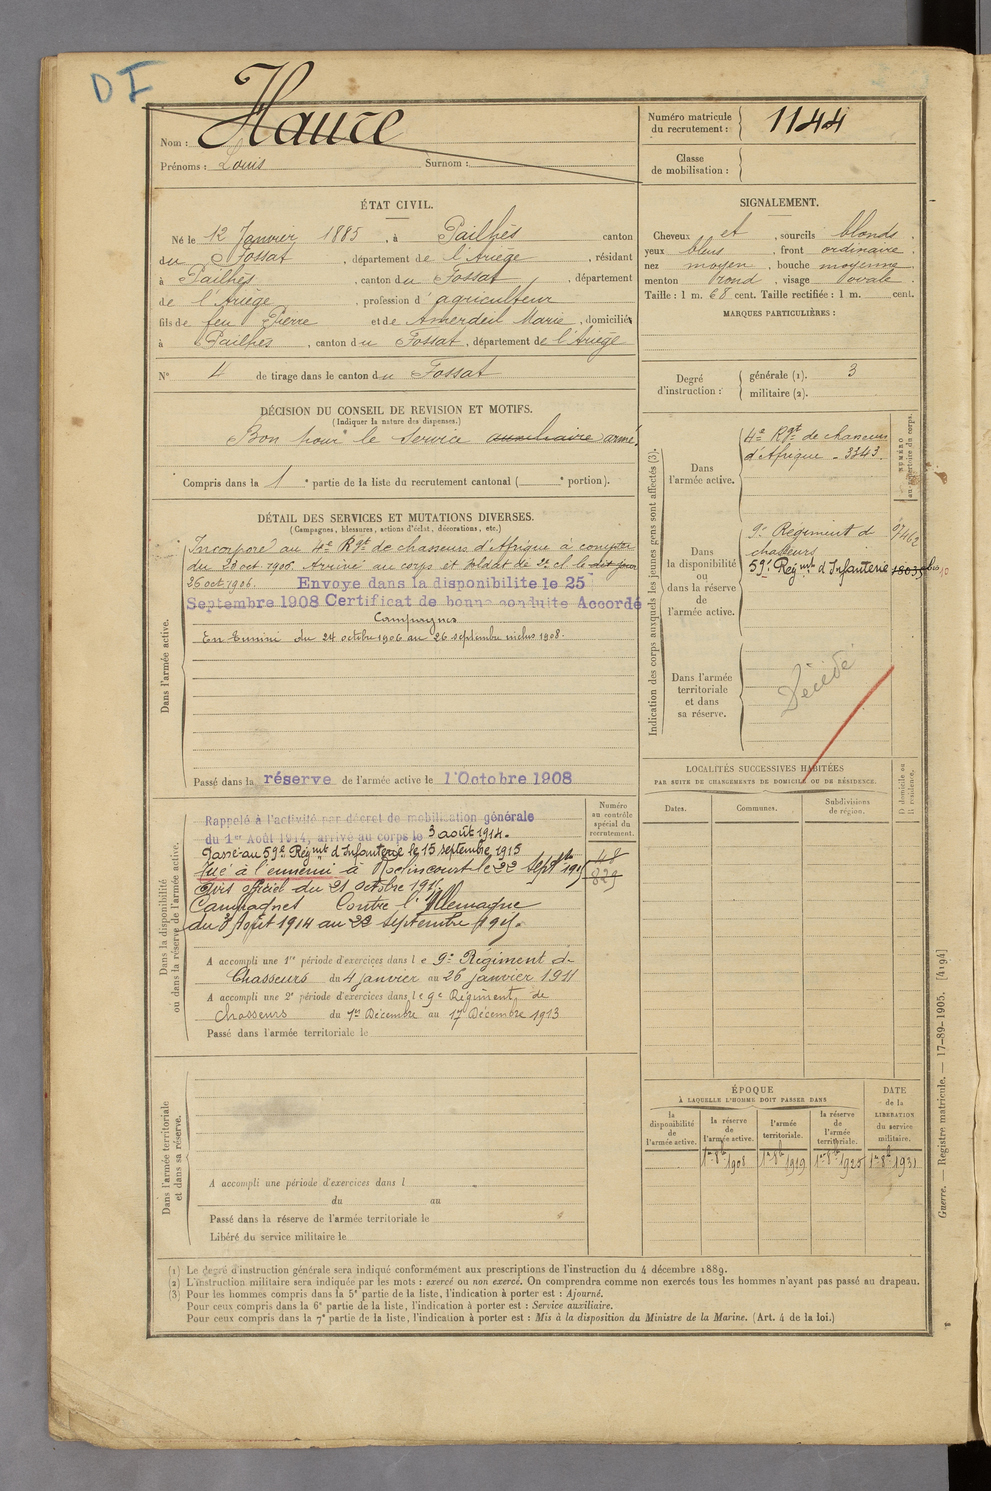 D I
Nom : Haure
Prénoms : Louis Surnom :
Numéro matricule
du recrutement : 1144
Classe
de mobilisation :
ÉTAT CIVIL.
Né le 12 Janvier 1885, à Pailhès canton
du Fossat, département de l'Ariège, résidant
à Pailhès, canton du Fossat, département
de l'Ariège, profession d'agriculteur
fils de feu Pierre et de Marie, domiciliés
à Pailhès, canton du Fossat, département de l'Ariège
N° 4 de tirage dans le canton du Fossat
SIGNALEMENT.
Cheveux et, sourcils blonds.
yeux bleus, front ordinaire
nez moyen, bouche moyenne
menton rond, visage ovale
Taille : 1 m. 68 cent. Taille rectifiée : 1 m. cent.
MARQUES PARTICULIÈRES :
Degré
d'instruction :
générale (1). 3
militaire (2).
DÉCISION DU CONSEIL DE REVISION ET MOTIFS.
(Indiquer la nature des dispenses.)
Bon pour le service auxiliaire armé.
Compris dans la 1e partie de la liste du recrutement cantonal ( e portion).
DÉTAIL DES SERVICES ET MUTATIONS DIVERSES.
(Campagnes, blessures, actions d'éclat, décorations, etc.)
Dans l'armée active.
Incorporé au 4e Rgt de chasseurs d'Afrique à compter
du oct. 1906. Arrivé au corps et soldat de 2e cl. le dit jour
26 oct 1906. Envoye dans la disponibilite le 25
Septembre 1908 Certificat de bonne conduite Accordé
Campagnes
En Tunisie du 24 octobre 1906 au 26 septembre inclus 1908.
Passé dans la réserve de l'armée active le 1er Octobre 1908
Indication des corps auxquels les jeunes gens sont affectés (3).
NUMÉRO
au répertoire du corps.
Dans
l'armée active.
4e Rgt de chasseurs
d'Afrique - 3343
Dans
la disponibilité
ou
dans la réserve
de
l'armée active.
9e Regiment de
chasseurs
59e Régmt d'Infanterie
Dans l'armée
territoriale
et dans
sa réserve.
Décédé
LOCALITÉS SUCCESSIVES HABITÉES
PAR SUITE DE CHANGEMENTS DE DOMICILE OU DE RÉSIDENCE.
Dates.
Communes.
Subdivisions
de région.
D domicile ou
R résidence.
Dans la disponibilité
ou dans la réserve de l'armée active.
Numéro
au contrôle
spécial du
recrutement.
48
829
Rappelé à l'activité par décret de mobilisation générale
du 1er Août 1914, arrivé au corps le 3 août 1914.
Passé au 59e Régmt d'Infanterie le 15 septembre 1915
Tué à l'ennemi à Roclincourt le 22 Septbre 1915
Avis officiel du 21 octobre 1915.
Campagnes Contre l'Allemagne
du 3 Août 1914 au 22 septembre 1915.
A accompli une 1re période d'exercices dans le 9e Régiment de
Chasseurs du 4 janvier au 26 janvier 1911
A accompli une 2e période d'exercices dans le 9e Régiment de
Chasseurs du 1er Décembre au 17 Décembre 1913
Passé dans l'armée territoriale le
Dans l'armée territoriale
et dans sa réserve.
A accompli une période d'exercices dans l
du au
Passé dans la réserve de l'armée territoriale le
Libéré du service militaire le
ÉPOQUE
À LAQUELLE L'HOMME DOIT PASSER DANS
la
disponibilité
de
l'armée active.
la réserve
de
l'armée active.
l'armée
territoriale.
la réserve
de
l'armée
territoriale.
DATE
de la
LIBÉRATION
du service
militaire.
1er 8bre 1908
1er 8bre 1919
1er 8bre 1925
1er 8bre 1931
(1) Le degré d'instruction générale sera indiqué conformément aux prescriptions de l'instruction du 4 décembre 1889.
(2) L'instruction militaire sera indiquée par les mots : exercé ou non exercé. On comprendra comme non exercés tous les hommes n'ayant pas passé au drapeau.
(3) Pour les hommes compris dans la 5e partie de la liste, l'indication à porter est : Ajourné.
Pour ceux compris dans la 6e partie de la liste, l'indication à porter est : Service auxiliaire.
Pour ceux compris dans la 7e partie de la liste, l'indication à porter est : Mis à la disposition du Ministre de la Marine. (Art. 4 de la loi.)
Guerre. — Registre matricule. — 17-89-1905. [4194]